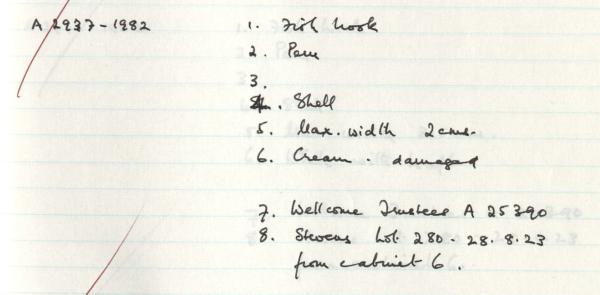 A 2937-1982
1. Fish hook
2. Peru
3.
4. Shell
5. Max. width 2cms.
6. Cream. damaged
7. Wellcome Trustees A 25390
8. Stevens Lot 280. 28.8.23
from cabinet 6.